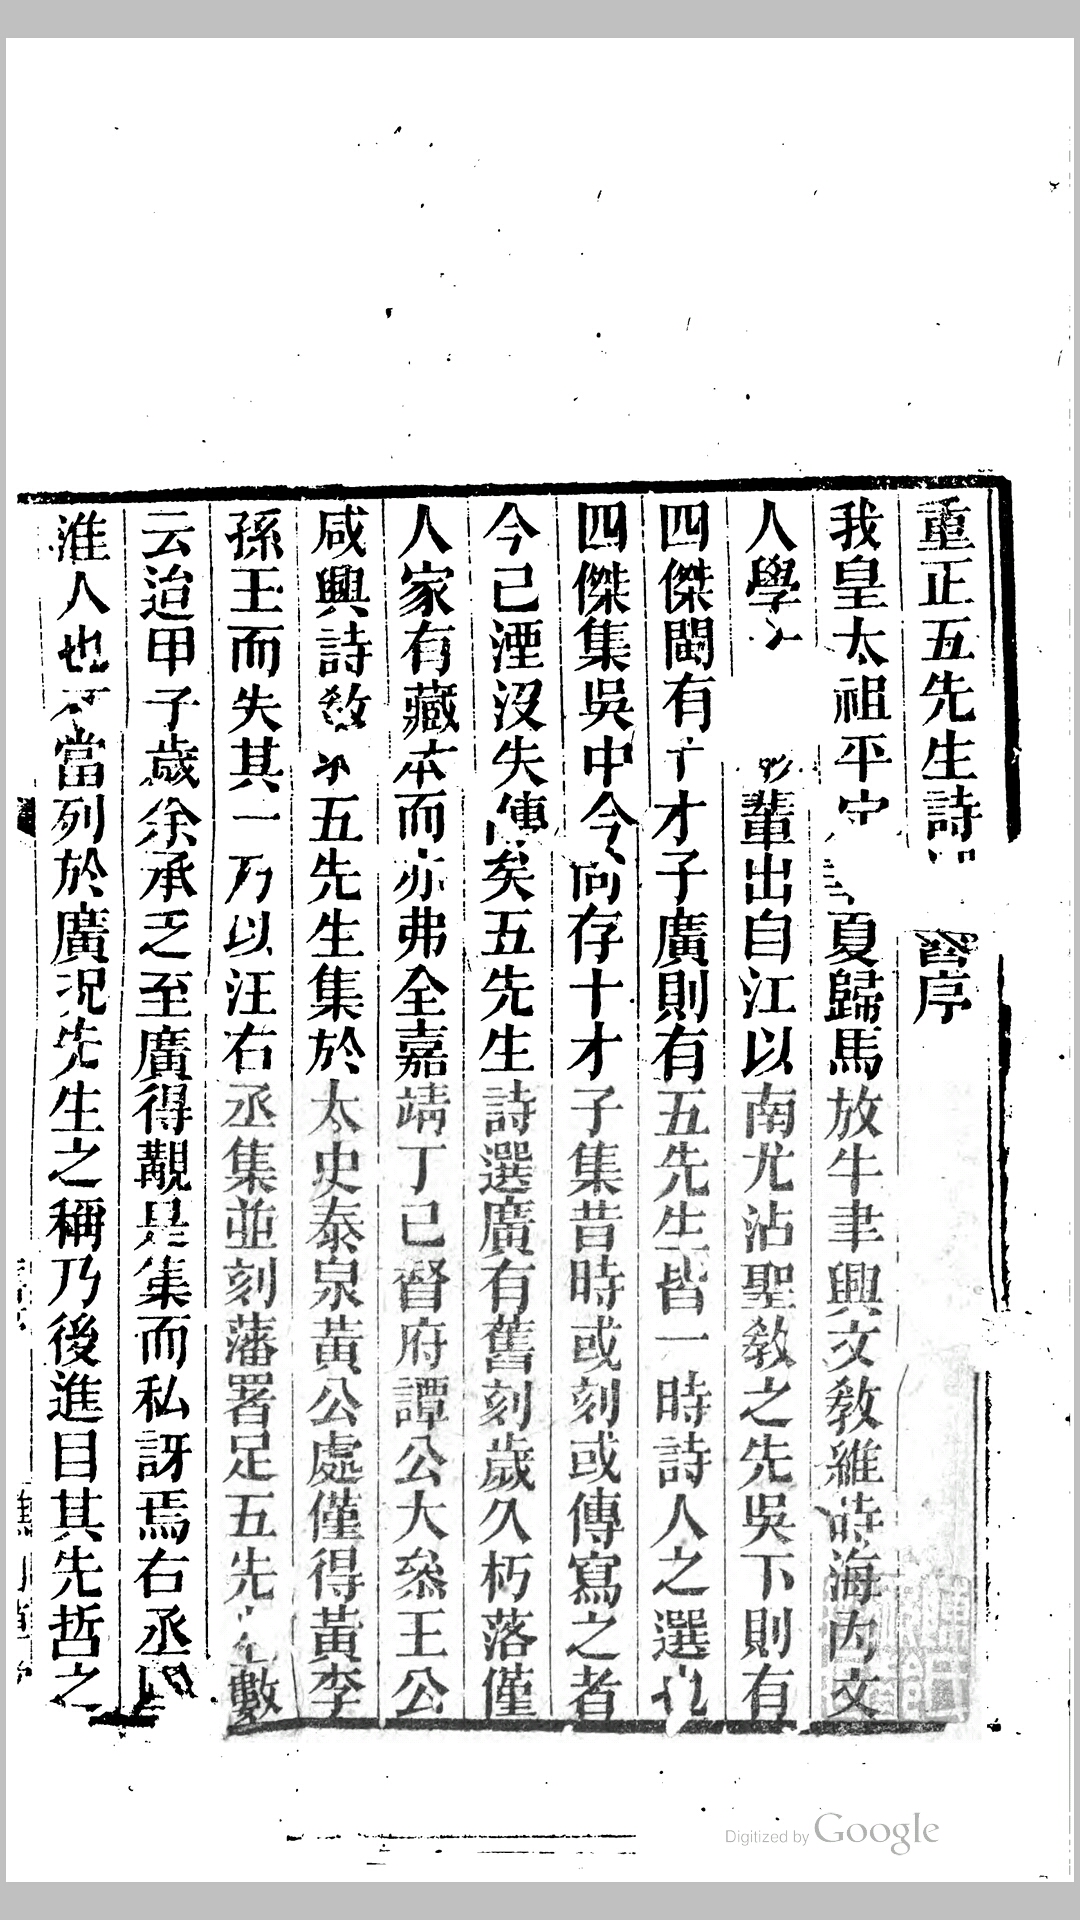 重正五先生詩 序
我皇太祖平 夏歸馬放牛聿興文敎維詩海內文
人學 輩出自江以南尤沾聖敎之先吳下則有
四傑閩有十才子廣則有五先生皆一時詩人之選也
四傑集吳中今尚存十才子集昔時或刻或傳寫之者
今已湮没失傳矣五先生詩選廣有舊刻歲久朽落僅
人家有藏本而亦弗全嘉靖丁已督府譚公大叅王公
咸興詩敎 五先生集於太史泰泉黃公處僅得黃李
孫王而失其一乃以汪右丞集並刻藩署足五先 數
云迨甲子歲余承乏至廣得覩是集而私訝焉右丞
淮人也不當列於廣況先生之稱乃後進目其先哲之
Digitized by Google